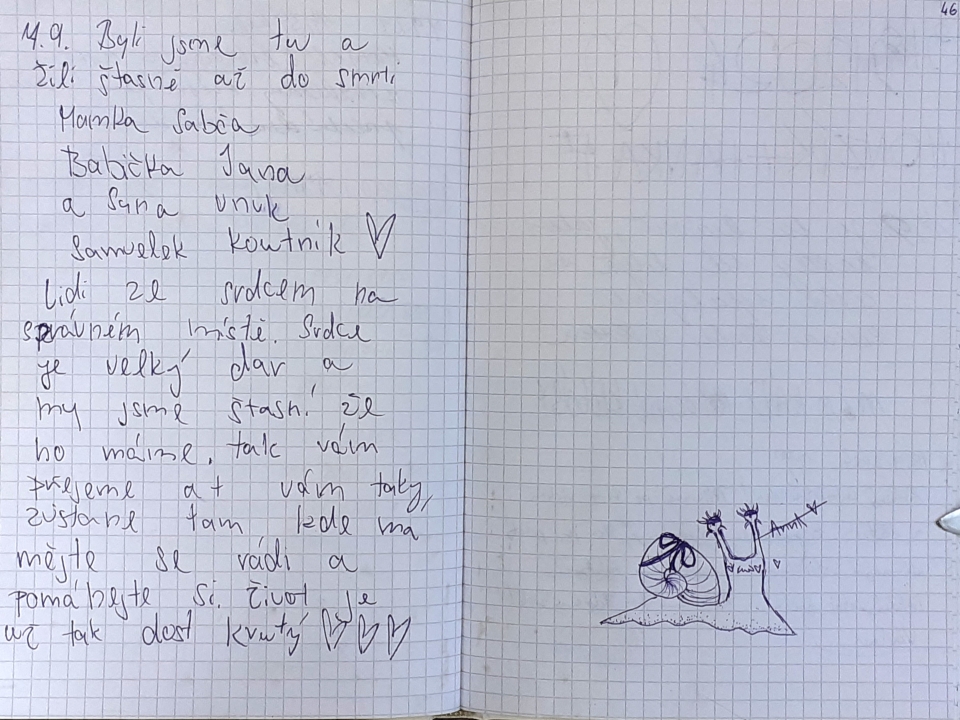 4.9. Byli jsme tu a
žili štasně až do smrti
Mamka Sabča
Babička Jana
a Syna vnuk
Samuelek Koutnik ♡
lidi ze srdcem na
správném místě. Srdce
je velký dar a
my jsme štasní že
ho máme, tak vám
přejeme at vám taky,
zůstane tam kde ma
mějte se rádi a
pomáhejte si. život je
už tak dost krutý ♡♡♡
46